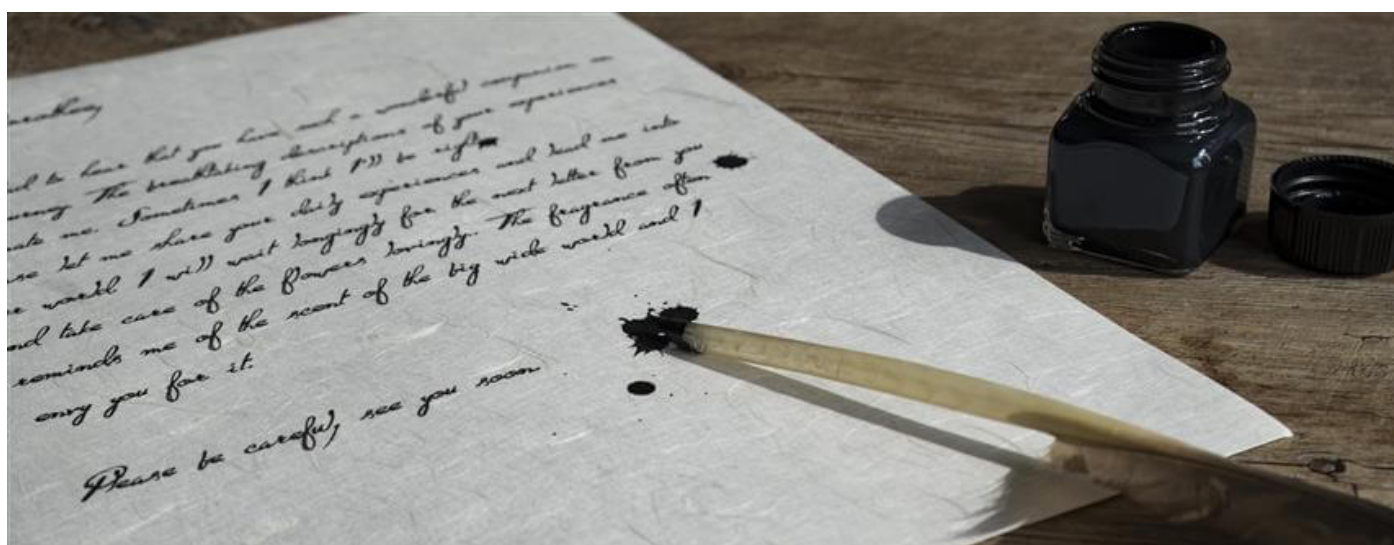 to hear that you have had a wonderful companion on
The breathtaking descriptions of your experiences
me. Sometimes I think I'll be
let me share your daily experiences and lead me into
world I will wait longingly for the next letter from you
nd take care of the flowers lovingly. The fragrance often
reminds me of the scent of the big wide world and I
envy you for it.
Please be careful, see you soon